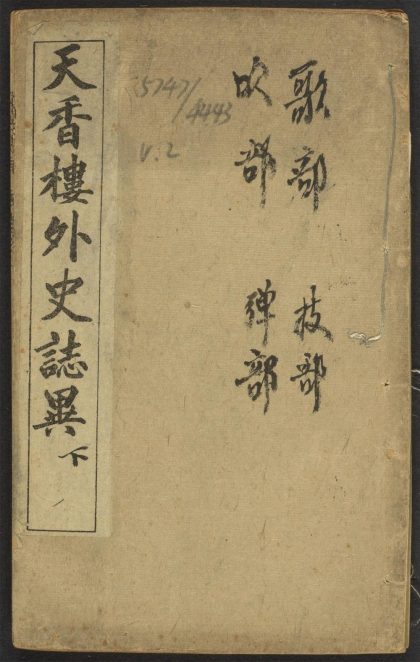 歌部 技部
吹部 弹部
5747/4443
V.2
天香樓外史誌異 下